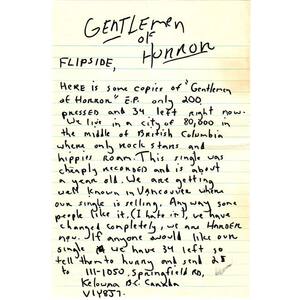 GENTLEMEN
of
HORROR
FLIPSIDE,
HERE is some copies of "Gentlemen
of Horror" E.P. only 200
pressed and 34 left right now.
We live in a city of 80,000 in
the middle of British Columbia
where only rock stars and
hippies roam. This single was
cheaply recorded and is about
a year old. We are getting
well known in Vancouver where
our single is selling. Anyway some
people like it, (I hate it), we have
changed completely, we are HARDER
now. If anyone would like our
single we have 34 left so
tell them to hurry and send 2$
to 111-1050, Springfield RD,
Kelowna B.C. Canada
V1Y8J7.